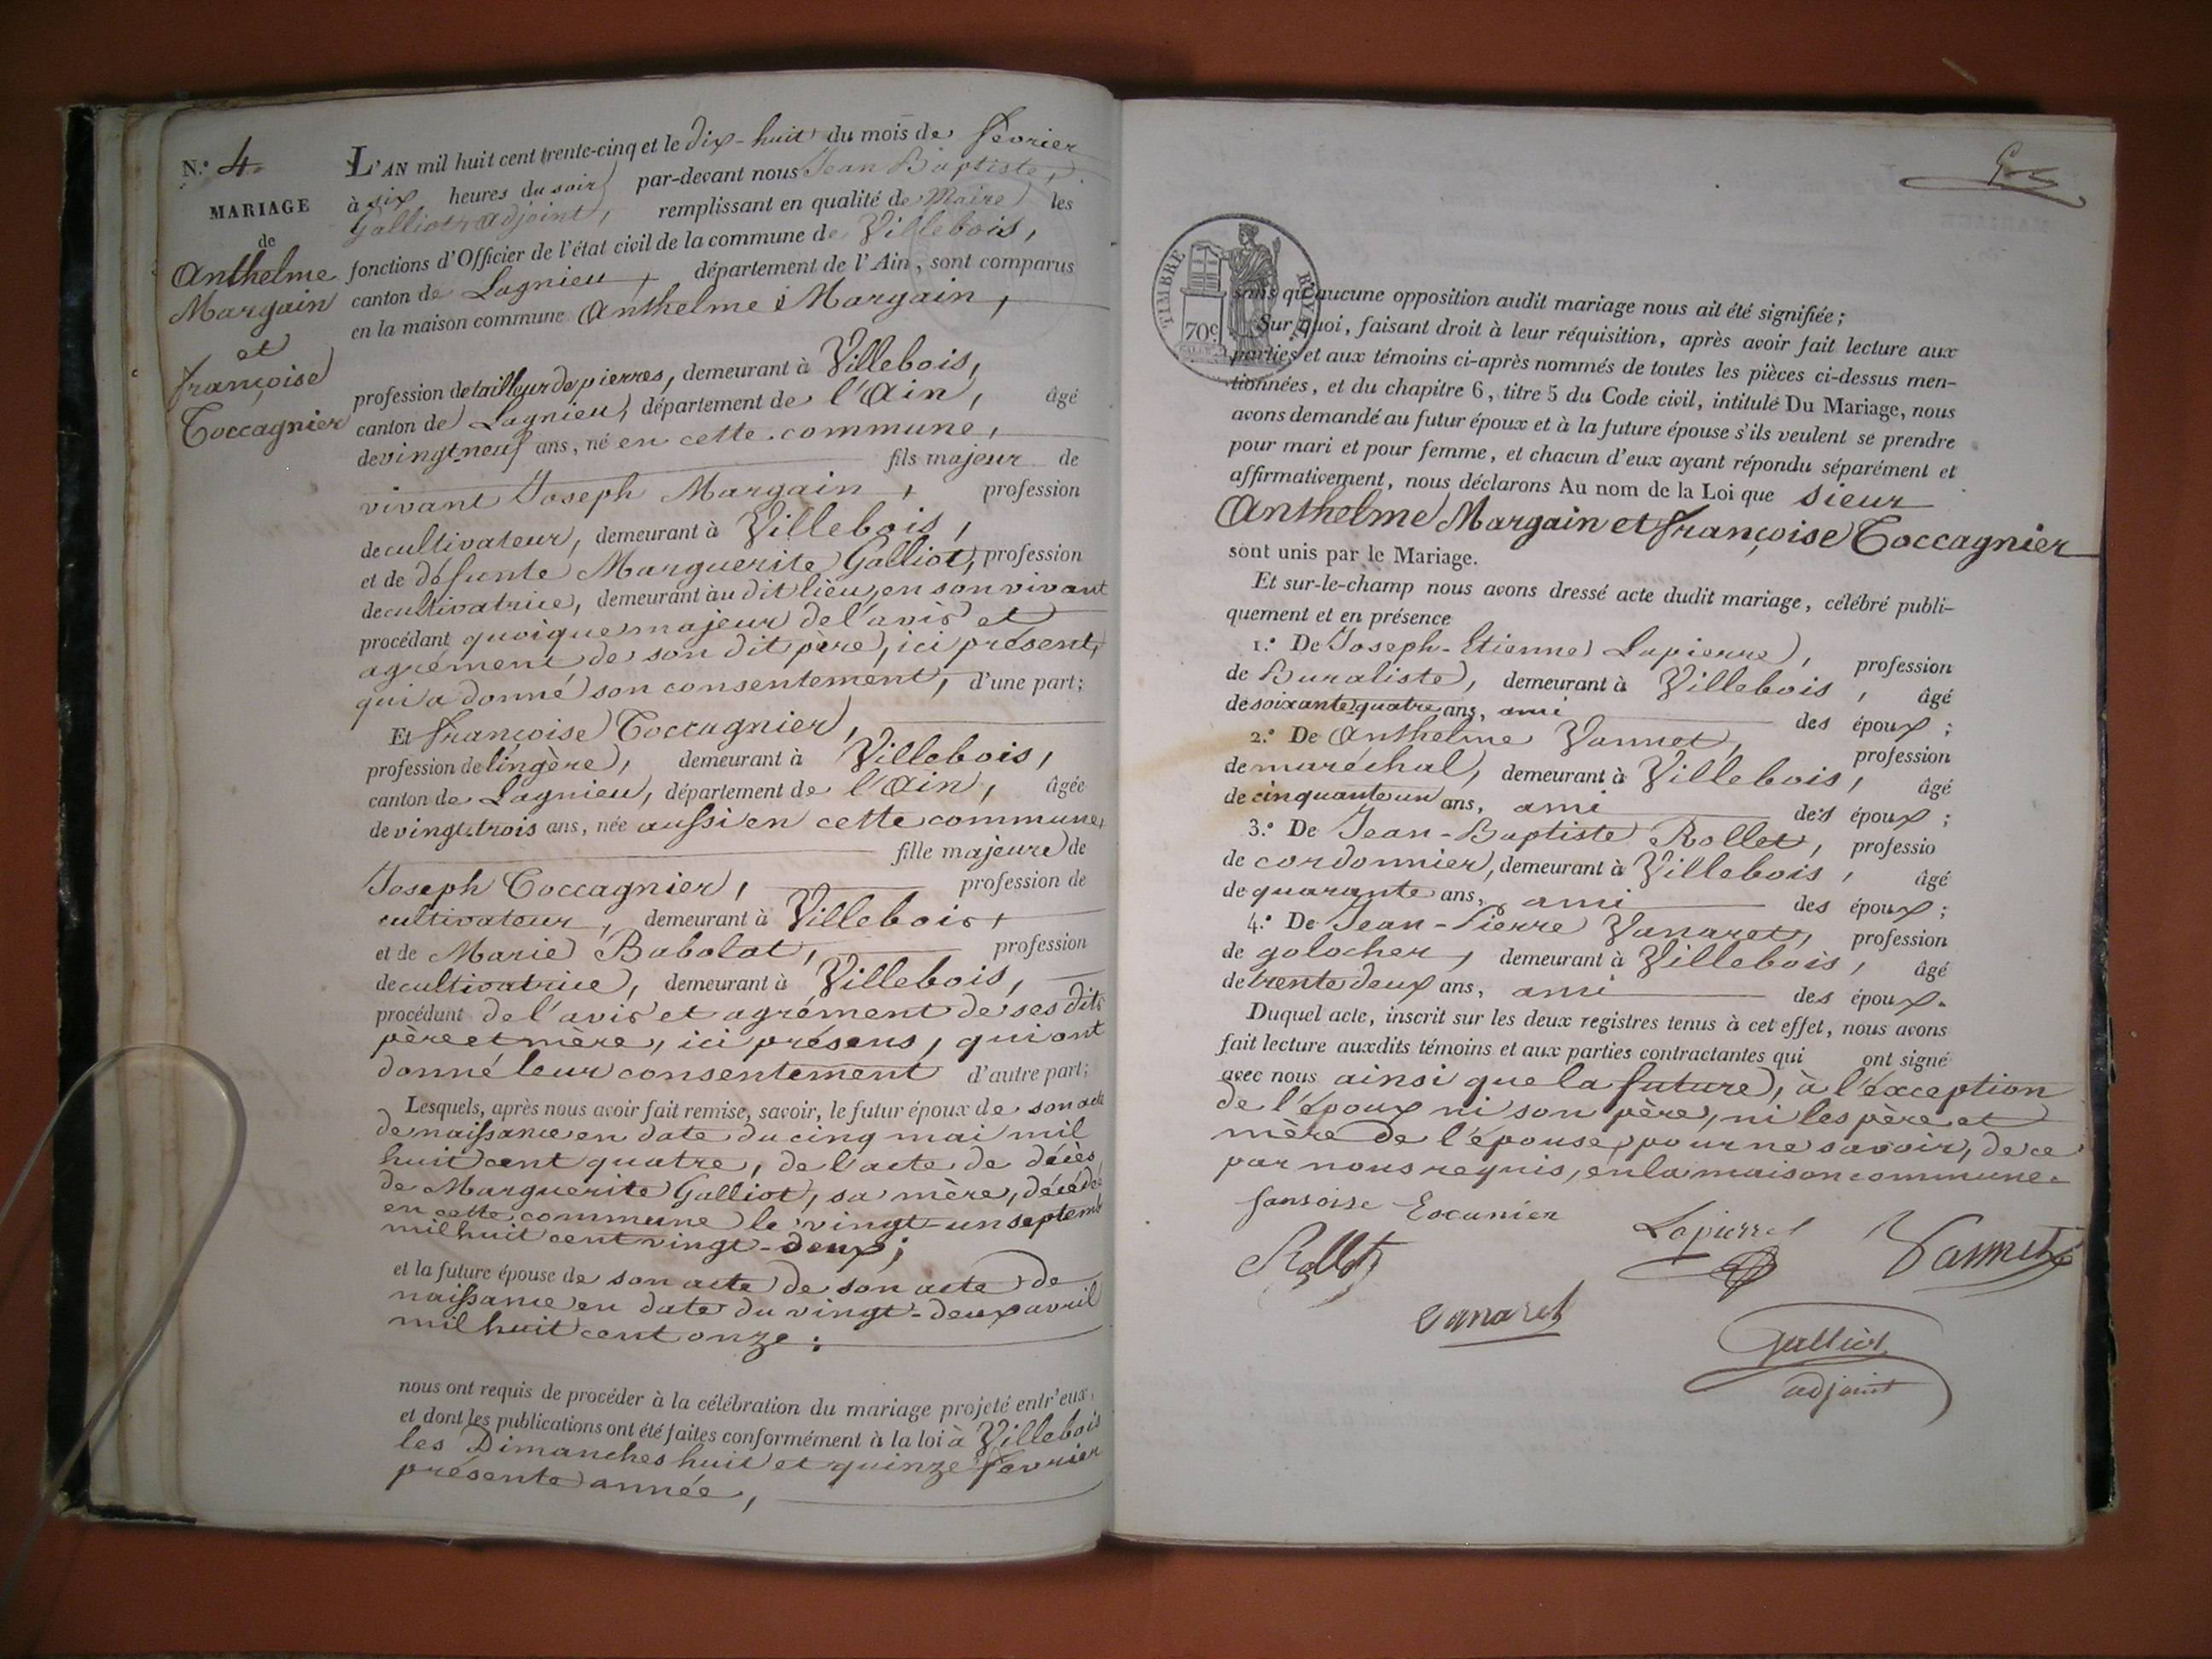 N.º 4.
MARIAGE
de
Anthelme
Margain
et
françoise
Coccagnier
L'AN mil huit cent trente-cinq et le dix-huit du mois de février
à six heures du soir, par-devant nous Jean Baptiste
Galliot, adjoint, remplissant en qualité de Maire les
fonctions d'Officier de l'état civil de la commune de Villebois,
canton de Lagnieu, département de l'Ain, sont comparus
en la maison commune Anthelme Margain,
profession de tailleur de pierres, demeurant à Villebois,
canton de Lagnieu, département de l'Ain, âgé
de vingt-neuf ans, né en cette commune,
fils majeur de
vivant Joseph Margain, profession
de cultivateur, demeurant à Villebois,
et de défunte Marguerite Galliot, profession
de cultivatrice, demeurant au dit lieu, en son vivant
procédant quoique majeur de l'avis et
agrément de son dit père, ici présent,
qui a donné son consentement, d'une part;
Et françoise Coccagnier,
profession de lingère, demeurant à Villebois,
canton de Lagnieu, département de l'Ain, âgée
de vingt-trois ans, née aussi en cette commune,
fille majeure de
Joseph Coccagnier, profession de
cultivateur, demeurant à Villebois,
et de Marie Babolat, profession
de cultivatrice, demeurant à Villebois,
procédant de l'avis et agrément de ses dits
père et mère, ici présens, qui ont
donné leur consentement d'autre part;
Lesquels, après nous avoir fait remise, savoir, le futur époux de son acte
de naissance en date du cinq mai mil
huit cent quatre, de l'acte de décès
de Marguerite Galliot, sa mère, décédée
en cette commune le vingt-un septemb
mil huit cent vingt-deux;
et la future épouse de son acte de son acte de
naissance en date du vingt-deux avril
mil huit cent onze:
nous ont requis de procéder à la célébration du mariage projeté entr'eux,
et dont les publications ont été faites conformément à la loi à Villebois
les Dimanches huit et quinze février
présente année,
TIMBRE ROYAL
70c
sans qu'aucune opposition audit mariage nous ait été signifiée;
Sur quoi, faisant droit à leur réquisition, après avoir fait lecture aux
parties et aux témoins ci-après nommés de toutes les pièces ci-dessus men-
tionnées, et du chapitre 6, titre 5 du Code civil, intitulé Du Mariage, nous
avons demandé au futur époux et à la future épouse s'ils veulent se prendre
pour mari et pour femme, et chacun d'eux ayant répondu séparément et
affirmativement, nous déclarons Au nom de la Loi que sieur
Anthelme Margain et françoise Coccagnier
sont unis par le Mariage.
Et sur-le-champ nous avons dressé acte dudit mariage, célébré publi-
quement et en présence
1.º De Joseph-Etienne Lapierre, profession
de Buraliste, demeurant à Villebois, âgé
de soixante-quatre ans, ami des époux;
2.º De Anthelme Vannet, profession
de maréchal, demeurant à Villebois, âgé
de cinquante un ans, ami des époux;
3.º De Jean-Baptiste Rollet, professio
de cordonnier, demeurant à Villebois, âgé
de quarante ans, ami des époux;
4.º De Jean-Pierre Vanaret, profession
de golocher, demeurant à Villebois, âgé
de trente deux ans, ami des époux.
Duquel acte, inscrit sur les deux registres tenus à cet effet, nous avons
fait lecture auxdits témoins et aux parties contractantes qui ont signé
avec nous ainsi que la future, à l'éxception
de l'époux ni son père, ni les père et
mère de l'épouse, pour ne savoir, de ce
par nous requis, en la maison commune.
fansoise Cocanier
Lapierre
Vannet
Rollet
Vanaret
Galliot
adjoint